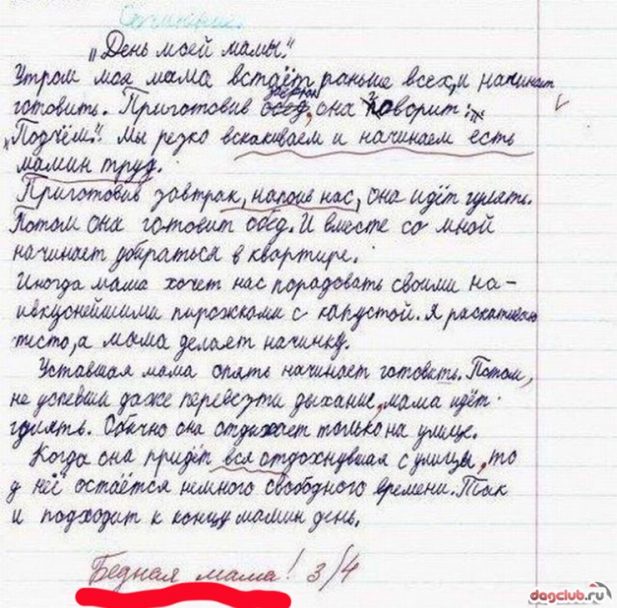 Сочинение.
„День моей мамы."
Утром моя мама встаёт раньше всех, и начинает
готовить. Приготовив обед завтрак, она говорит:
„Подъём!" Мы резко вскакиваем и начинаем есть
мамин труд.
Приготовив завтрак, напоив нас, она идёт гулять.
Потом она готовит обед. И вместе со мной
начинает убираться в квартире.
Иногда мама хочет нас порадовать своими на-
ивкуснейшими пирожками с капустой. Я раскатываю
тесто, а мама делает начинку.
Уставшая мама опять начинает готовить. Потом,
не успевши даже перевезти дыхание, мама идёт
гулять. Обычно она отдыхает только на улице.
Когда она придёт вся отдохнувшая с улицы, то
у неё остаётся немного свободного времени. Так
и подходит к концу мамин день.
Бедная мама! 3/4
dagclub.ru